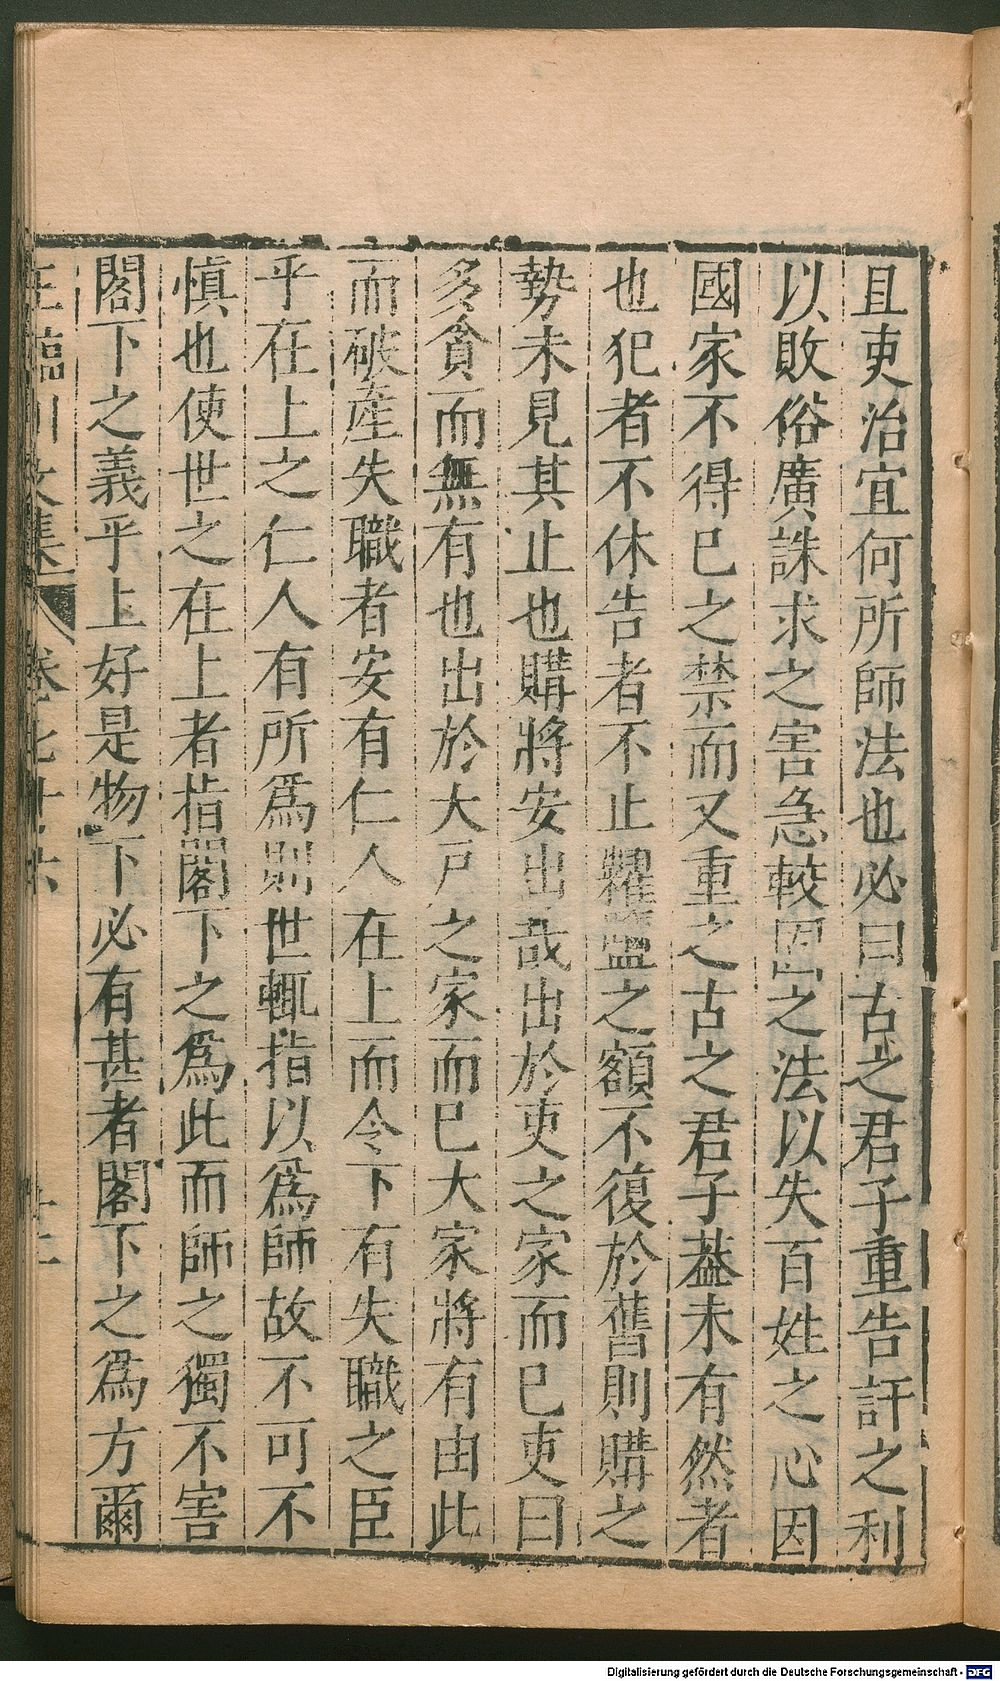 且吏治宜何所師法也必曰古之君子重告訐之利
以敗俗廣誅求之害急較固之法以失百姓之心因
國家不得已之禁而又重之古之君子葢未有然者
也犯者不休告者不止糶鹽之額不復於舊則購之
勢未見其止也購將安出哉出於吏之家而已吏曰
多貧而無有也出於大戸之家而已大家將有由此
而破產失職者安有仁人在上而令下有失職之臣
乎在上之仁人有所爲則世輒指以爲師故不可不
慎也使世之在上者指閣下之爲此而師之獨不害
閣下之義乎上好是物下必有甚者閣下之爲方爾
王臨川文集 卷七十六 十二
Digitalisierung gefördert durch die Deutsche Forschungsgemeinschaft - DFG